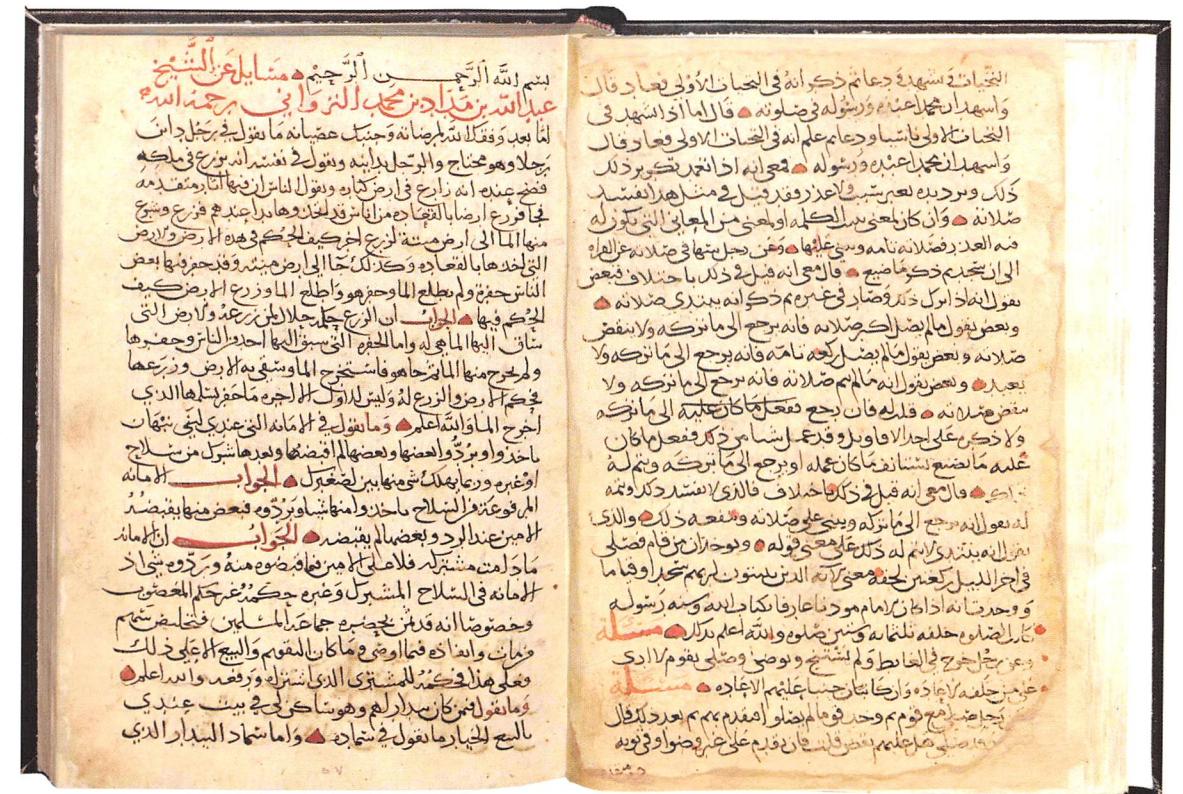 التحيات وتشهد ودعا ثم ذكر انه في التحيات الاولى فعاد قال
واشهد ان محمدا عبده ورسوله في صلوته قال اما اذا تشهد في
التحيات الاولى ناسيا ودعا ثم علم انه في التحيات الاولى فعاد فقال
واشهد ان محمدا عبده ورسوله فمعي انه اذا تعمد تكرير ذلك
ذلك وترديده لغير سبب ولا عذر فقد قيل في مثل هذا تفسد
صلاته وان كان لمعنى الكلمه او لمعنى من المعاني التي يكون له
فيه العذر فصلاته تامه ويبني عليها وعن رجل في صلاته عن القراه
الى ان ثم ذكر ما ضيع قال معي انه قيل في ذلك باختلاف فبعض
يقول انه اذا ترك ذلك وصار في غيره ثم ذكر انه يبتدي صلاته
وبعض يقول ما لم يصل اكثر صلاته فانه يرجع الى ما تركه ولا تنتقض
صلاته وبعض يقول ما لم يصل ركعه تامه فانه يرجع الى ما تركه ولا
يعيد وبعض يقول انه ما لم يتم صلاته فانه يرجع الى ما تركه ولا
تنتقض صلاته قلت له فان رجع ففعل ما كان عليه الى ما تركه
ولا ذكره على احد الاقاويل وقد عمل شيا من ذلك ففعل ما كان
عليه ما يصنع يستانف ما كان عمله او يرجع الى ما تركه ويتم له
قال معي انه قيل في ذلك باختلاف فالذي لا تفسد ذلك ويتمه
له يقول انه يرجع الى ما تركه ويبني على صلاته وينفعه ذلك والذي
يقول انه يبتدي لا يتم له ذلك على معنى قوله ويوجد ان من قام فصلى
في اخر الليل ركعتين لحقه معنى الايه الذين يبيتون لربهم سجدا وقياما
ووجدت انه اذا كان الامام مودنا عارفا بكتاب الله وسنه رسوله
تارك الصلوه خلفه ثلثمايه وستين صلوه والله اعلم بذلك مسئلة
وعن رجل خرج في الغايط ولم يستنج وتوضى وصلى بقوم لا ارى
على من خلفه الاعاده وان كان جنبا عليهم الاعاده مسئلة
قوم ثم وجد قوما لم يصلوا فقدم بهم ثم بعد ذلك قال
صلى هل عليهم نقض قلت فان قدم على غير وضوء او في ثوبه
بسم الله الرحمن الرحيم مسايل عن الشيخ
عبد الله بن مداد بن محمد النزواني رحمه الله
اما بعد وفقك الله لمرضاته وجنبك عصيانه ما يقول في رجل داين
رجلا وهو محتاج والرجل بداينه ويقول في نفسه انه يوزع في ملكه
فصح عنده انه زارع في ارض كباره ويقول الناس ان فيها اثار متقدمه
فجا فزرع ارضا بالقعاده من اناس قد اخذوها بدا عندهم فزرع وشرع
منها الما الى ارض ميتة لزرع اخر كيف الحكم في هذه الارض والارض
التي اخذها بالقعاده وكذلك جا الى ارض ميته وقد حفر فيها بعض
الناس حفرة ولم يطلع الما وحفر هو واطلع الما وزرع الارض كيف
الحكم فيها الجواب ان الزرع حلال لمن زرعه والارض التي
ساق اليها الما هي له واما الحفره التي سبق اليها احد من الناس وحفروها
ولم يخرج منها الما ثم جا هو فاستخرج الما وسقى به الارض وزرعها
فحكم الارض والزرع له وليس للاول الا اجره ما حفر يسلمها الذي
اخرج الما والله اعلم وما تقول في الامانه التي عندي لبني نبهان
ياخذوا ويردوا بعضها وبعضها لم اقبضها وبعدها شرك من سلاح
او غيره وربما يهلك شي منها بين لصغير الجواب الامانه
المرفوعة من السلاح ياخذوا منها شيا ويردوه فبعض منها يقبضه
الامين عند الرد وبعضها لم يقبضه الجواب ان الامانه
ما دامت مشتركه فلا على الامين فيما قبضوه منه وردوه شي اذ
الامانه في السلاح المشترك وغيره حكمه غير حكم المغصوب
وخصوصا انه قد بحضره جماعه المسلمين فتخلص سهم
من مات وانفاذه فيما اوصى وما كان التقويم والبيع الا على ذلك
وعلى هذا في حكمه للمشتري الذي اشتراه ورفعه والله اعلم
وما تقول فيمن كان بيدار لهم وهو ساكن لي في بيت عندي
بالبيع الخيار ما تقول في سماده واما سماد البيدار الذي